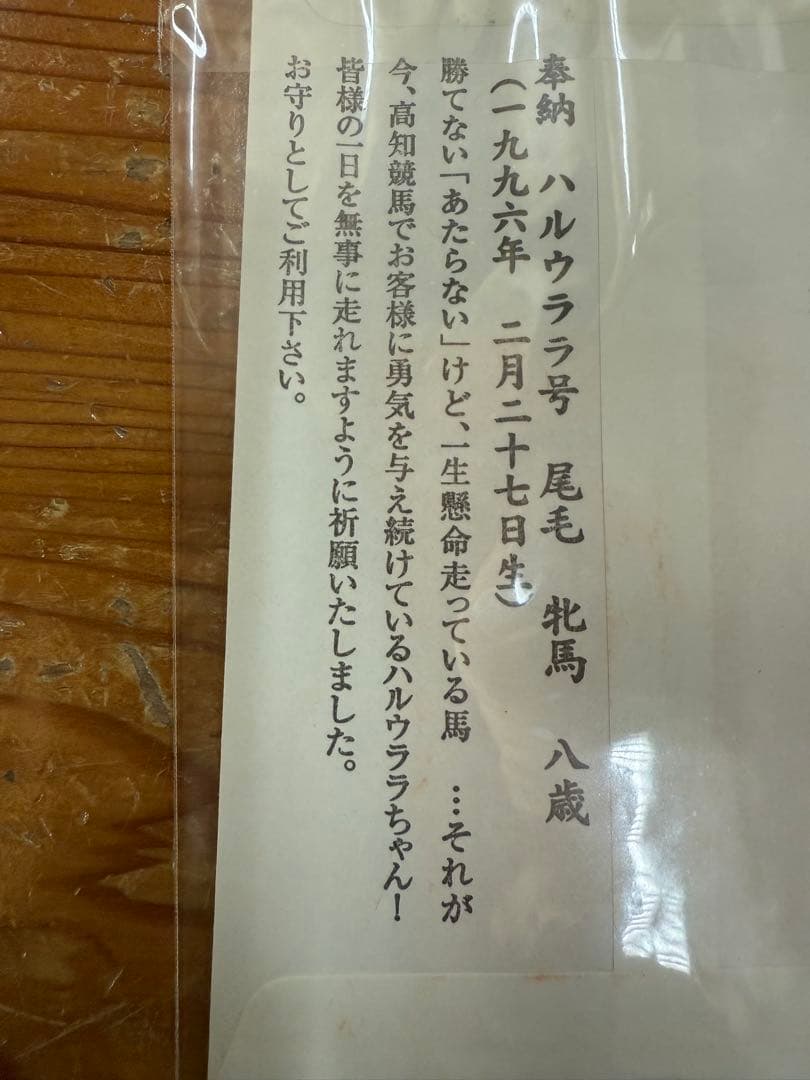 奉納 ハルウララ号 尾毛 牝馬 八歳
(一九九六年 二月二十七日生)
勝てない「あたらない」けど、一生懸命走っている馬 …それが
今、高知競馬でお客様に勇気を与え続けているハルウララちゃん!
皆様の一日を無事に走れますように祈願いたしました。
お守りとしてご利用下さい。